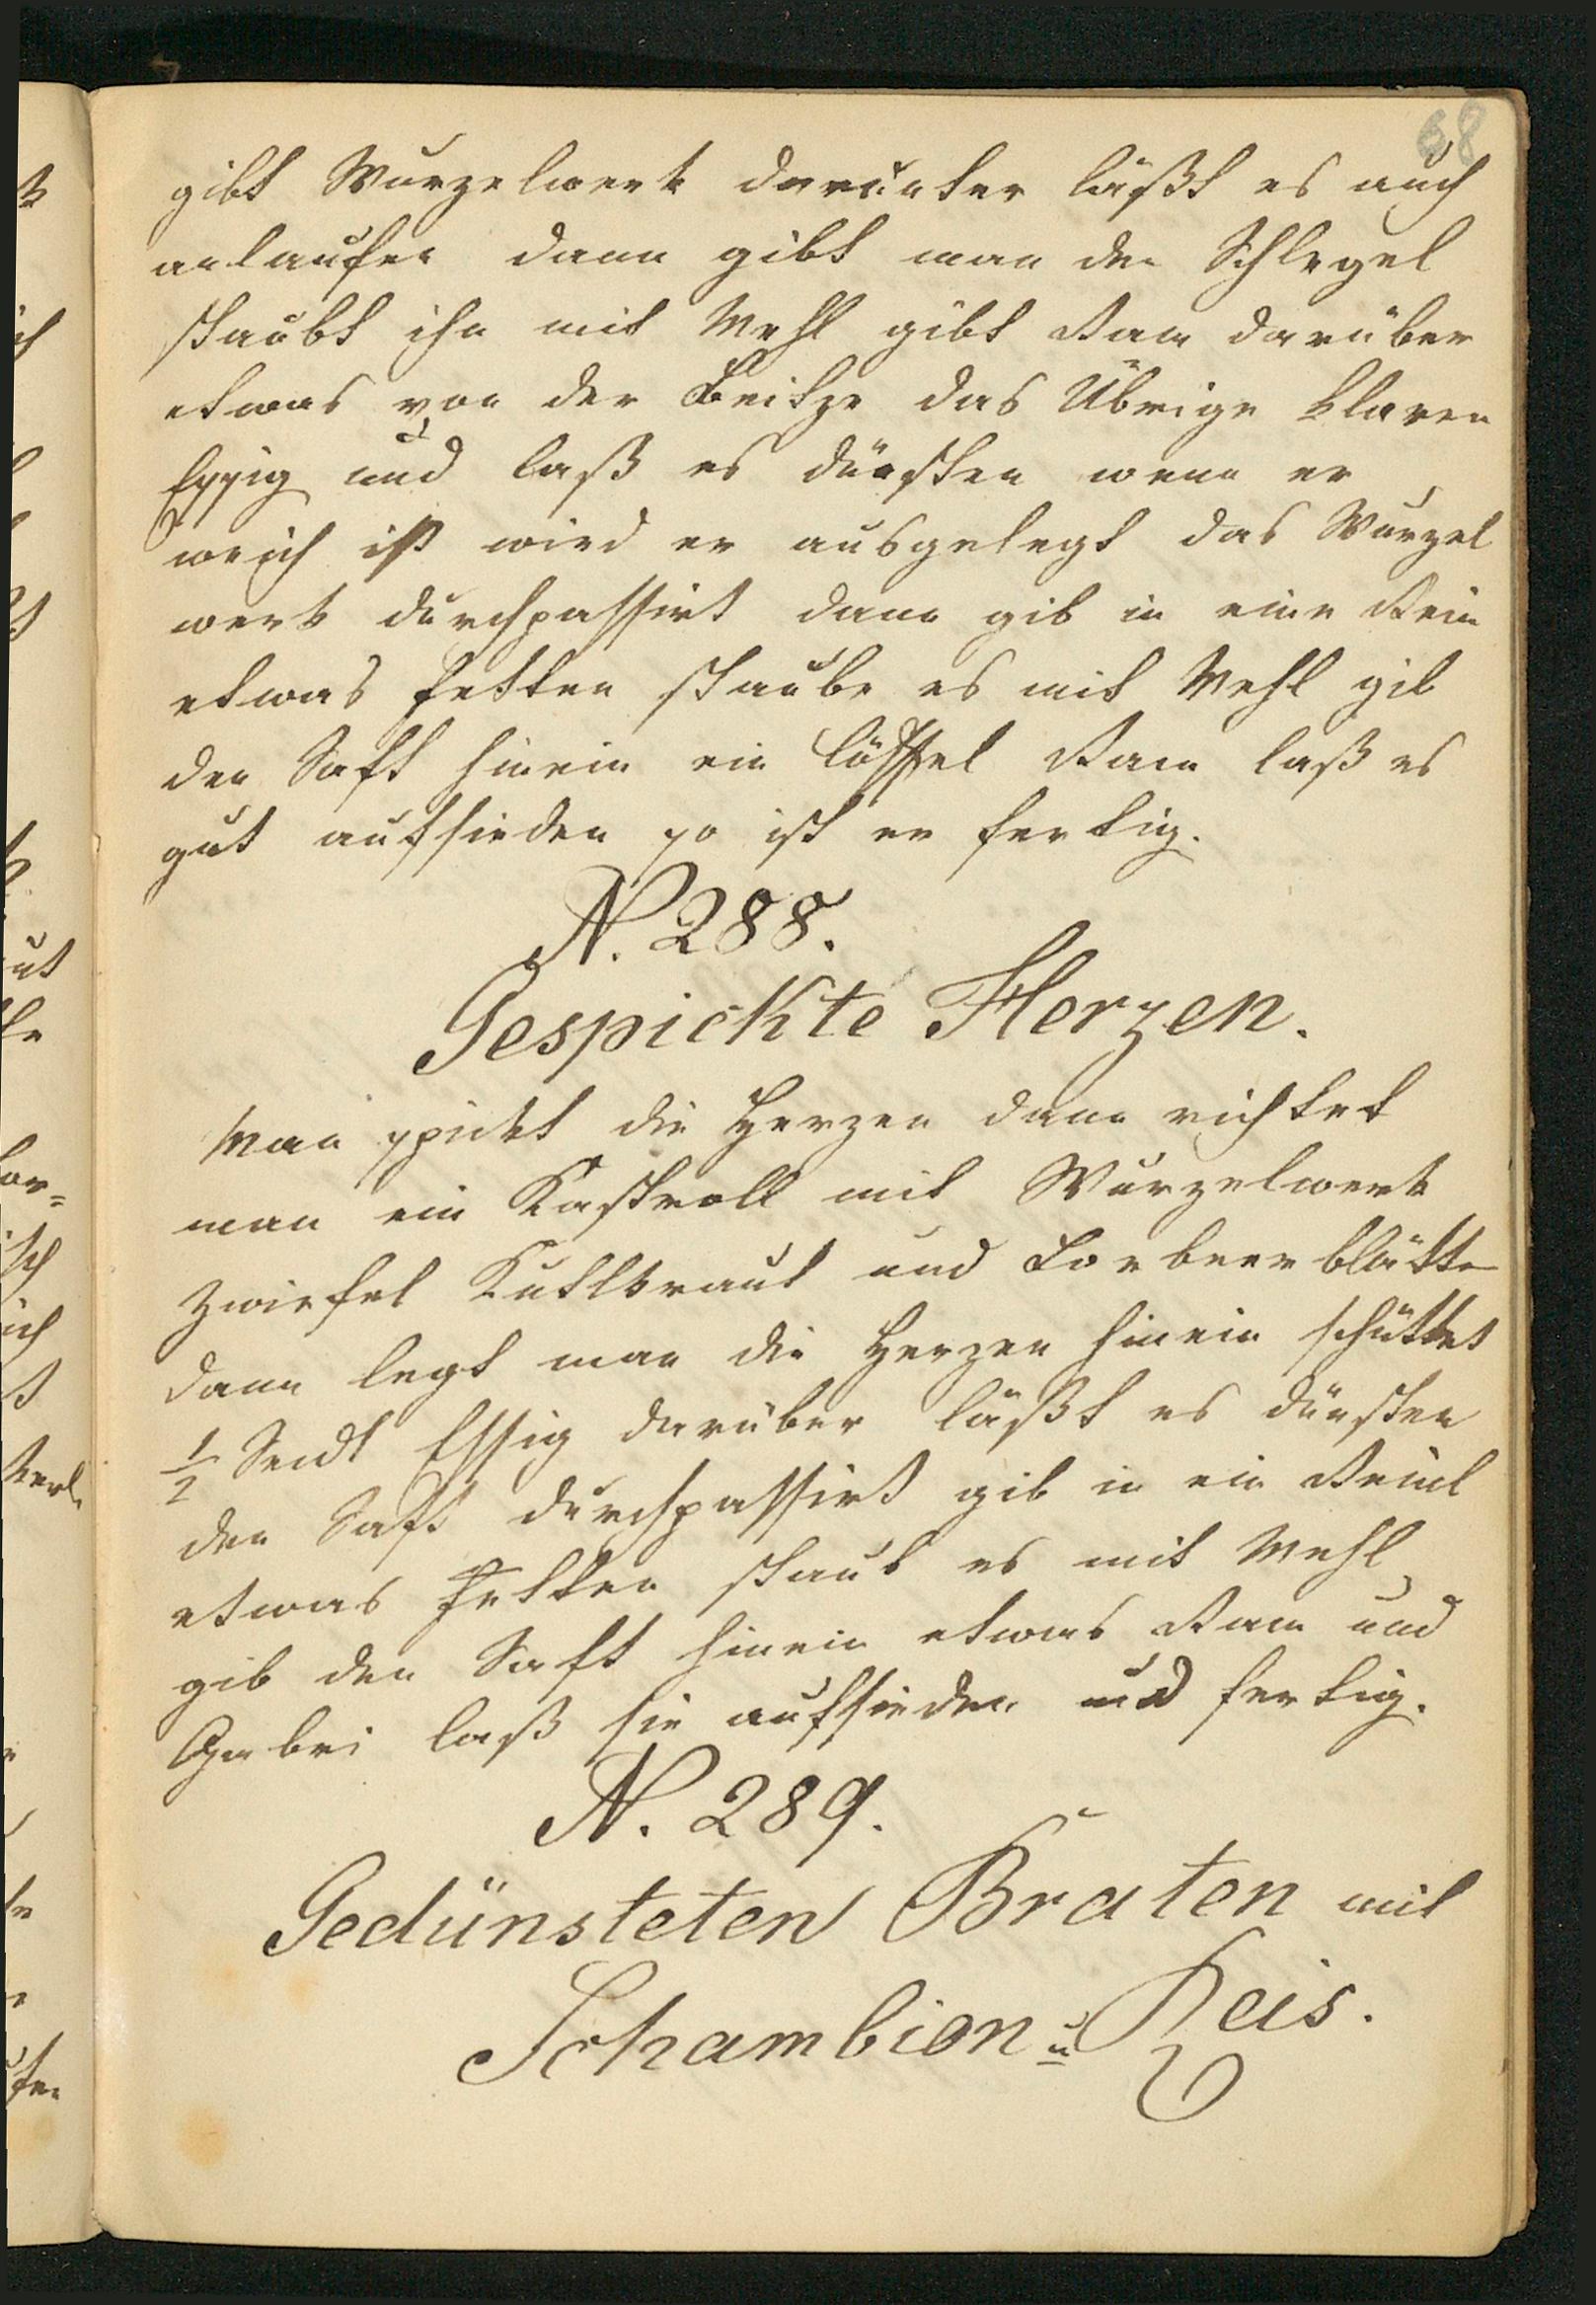 68
gibt Wurzelwerk darunter läßt es auch
anlaufen dann gibt man den Schlegel
staubt ihn mit Mehl gibt Ram darüber
etwas von der Beitze das Übrige klaren
Essig und laß es dünsten wenn er
weich ist wird er ausgelegt das Wurzel
werk durchpassirt dann gib in eine Rein
etwas Fetten staube es mit Mehl gib
den Saft hinein ein Löffel Ram laß es
gut aufsieden so ist er fertig.
N. 288.
Gespickte Herzen.
Man spickt die Herzen dann richtet
man ein Kastroll mit Wurzelwerk
Zwiefel Kuttlkraut und Lorbeerblätter
dann legt man die Herzen hinein schüttet
1/2 Seidl Essig darüber läßt es dünsten
den Saft durchpassirt gib in ein Reindl
etwas Fetten staub es mit Mehl
gib den Saft hinein etwas Ram und
Gabri laß sie aufsieden und fertig.
N. 289.
Gedünsteten Braten mit
Schambion u Reis.